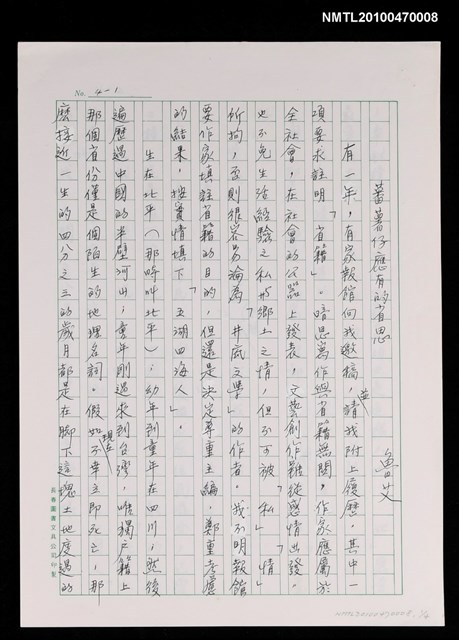 NMTL20100470008
No. 4-1
蕃薯仔應有的省思
魯艾
有一年，有家報館向我邀稿，並請我附上履歷，其中一
項要求註明「省籍」。暗思寫作與省籍無關，作家應屬於
全社會，在社會的公器上發表，文藝創作雖從感情出發。
也不免生活經驗之私的鄉土之情，但不可被「私」「情」
所拘，否則很容易淪為「井底文學」的作者。我不明報館
要作家填註省籍的目的，但還是決定尊重主編，鄭重考慮
的結果，按實情填下「五湖四海人」。
生在北平（那時叫北平）；幼年到童年在四川；然後
遍歷過中國的半壁河山；童年剛過來到台灣，唯獨戶籍上
那個省份僅是個陌生的地理名詞。假如現在不幸立即死亡，那
麼接近一生的四分之三的歲月都是在腳下這塊土地度過的
長春圖書文具公司印製
NMTL20100470008, 1/4